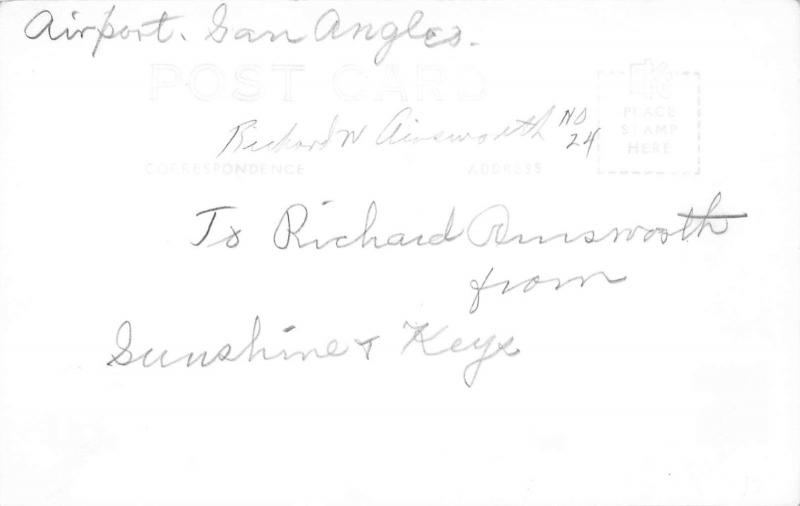 Airport. San Angles.
POST CARD
Richard W Ainsworth NO 24
PLACE
STAMP
HERE
CORRESPONDENCE
ADDRESS
To Richard Ainsworth
from
Sunshine & Keys